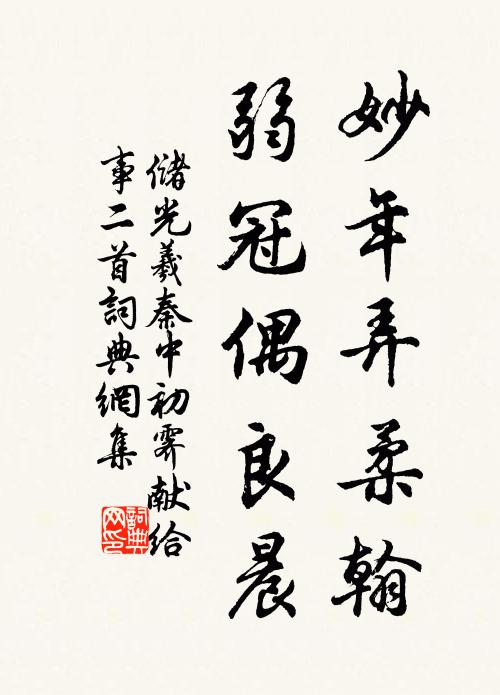 妙年弄柔翰
弱冠偶良晨
儲光羲秦中初霽献给
事二首詞典網集
詞典
网印